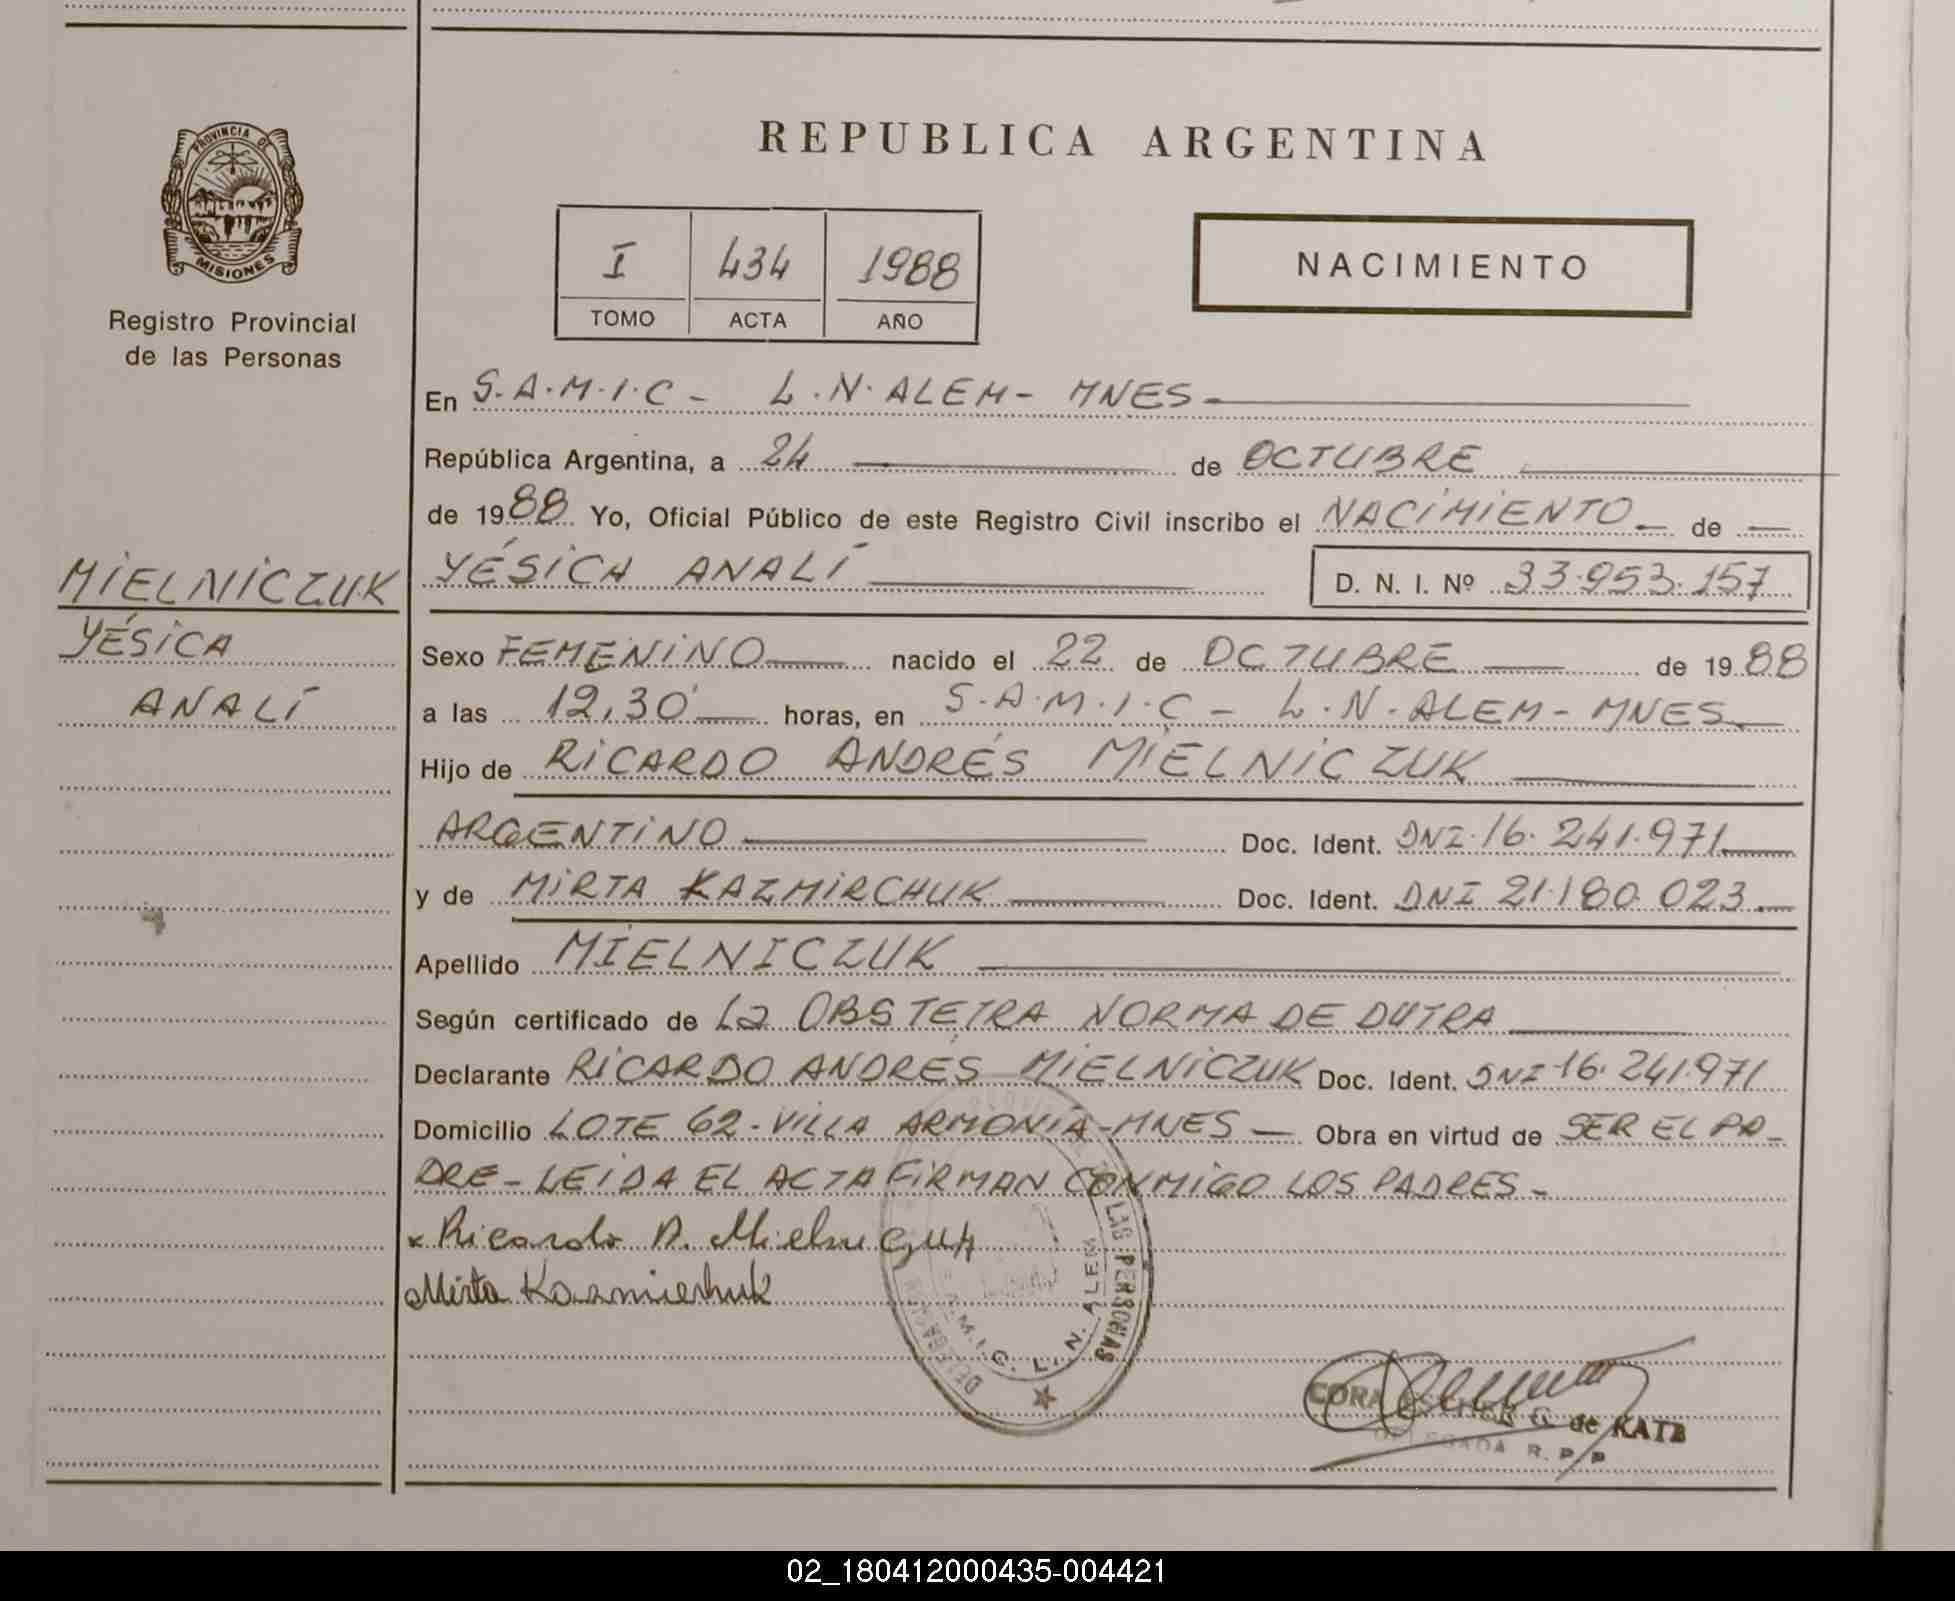 REPUBLICA ARGENTINA
PROVINCIA DE
MISIONES
Registro Provincial
de las Personas
I 434 1988
TOMO ACTA AÑO
NACIMIENTO
En S.A.M.I.C - L.N.ALEM - MNES
República Argentina, a 24 de OCTUBRE
de 1988 Yo, Oficial Público de este Registro Civil inscribo el NACIMIENTO de
YÉSICA ANALÍ D. N. I. Nº 33.953.157
MIELNICZUK
YÉSICA
ANALÍ
Sexo FEMENINO nacido el 22 de OCTUBRE de 1988
a las 12,30 horas, en S.A.M.I.C - L.N.ALEM - MNES
Hijo de RICARDO ANDRÉS MIELNICZUK
ARGENTINO Doc. Ident. DNI.16.241.971
y de MIRTA KAZMIRCHUK Doc. Ident. DNI 21.180.023
Apellido MIELNICZUK
Según certificado de La OBSTETRA NORMA DE DUTRA
Declarante RICARDO ANDRÉS MIELNICZUK Doc. Ident. DNI 16.241.971
Domicilio LOTE 62 - VILLA ARMONÍA - MNES Obra en virtud de SER EL PA-
DRE - LEIDA EL ACTA FIRMAN CONMIGO LOS PADRES -
x Ricardo A.
Mirta
LAS PERSONAS
M.I.C. L. N. ALEM
CORA ESTHER G. de KATZ
DELEGADA R. P. P
02_180412000435-004421